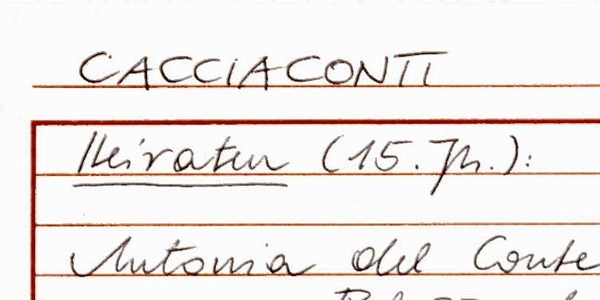 CACCIACONTI
Heiraten (15. Jh.):
Antonia del Conte